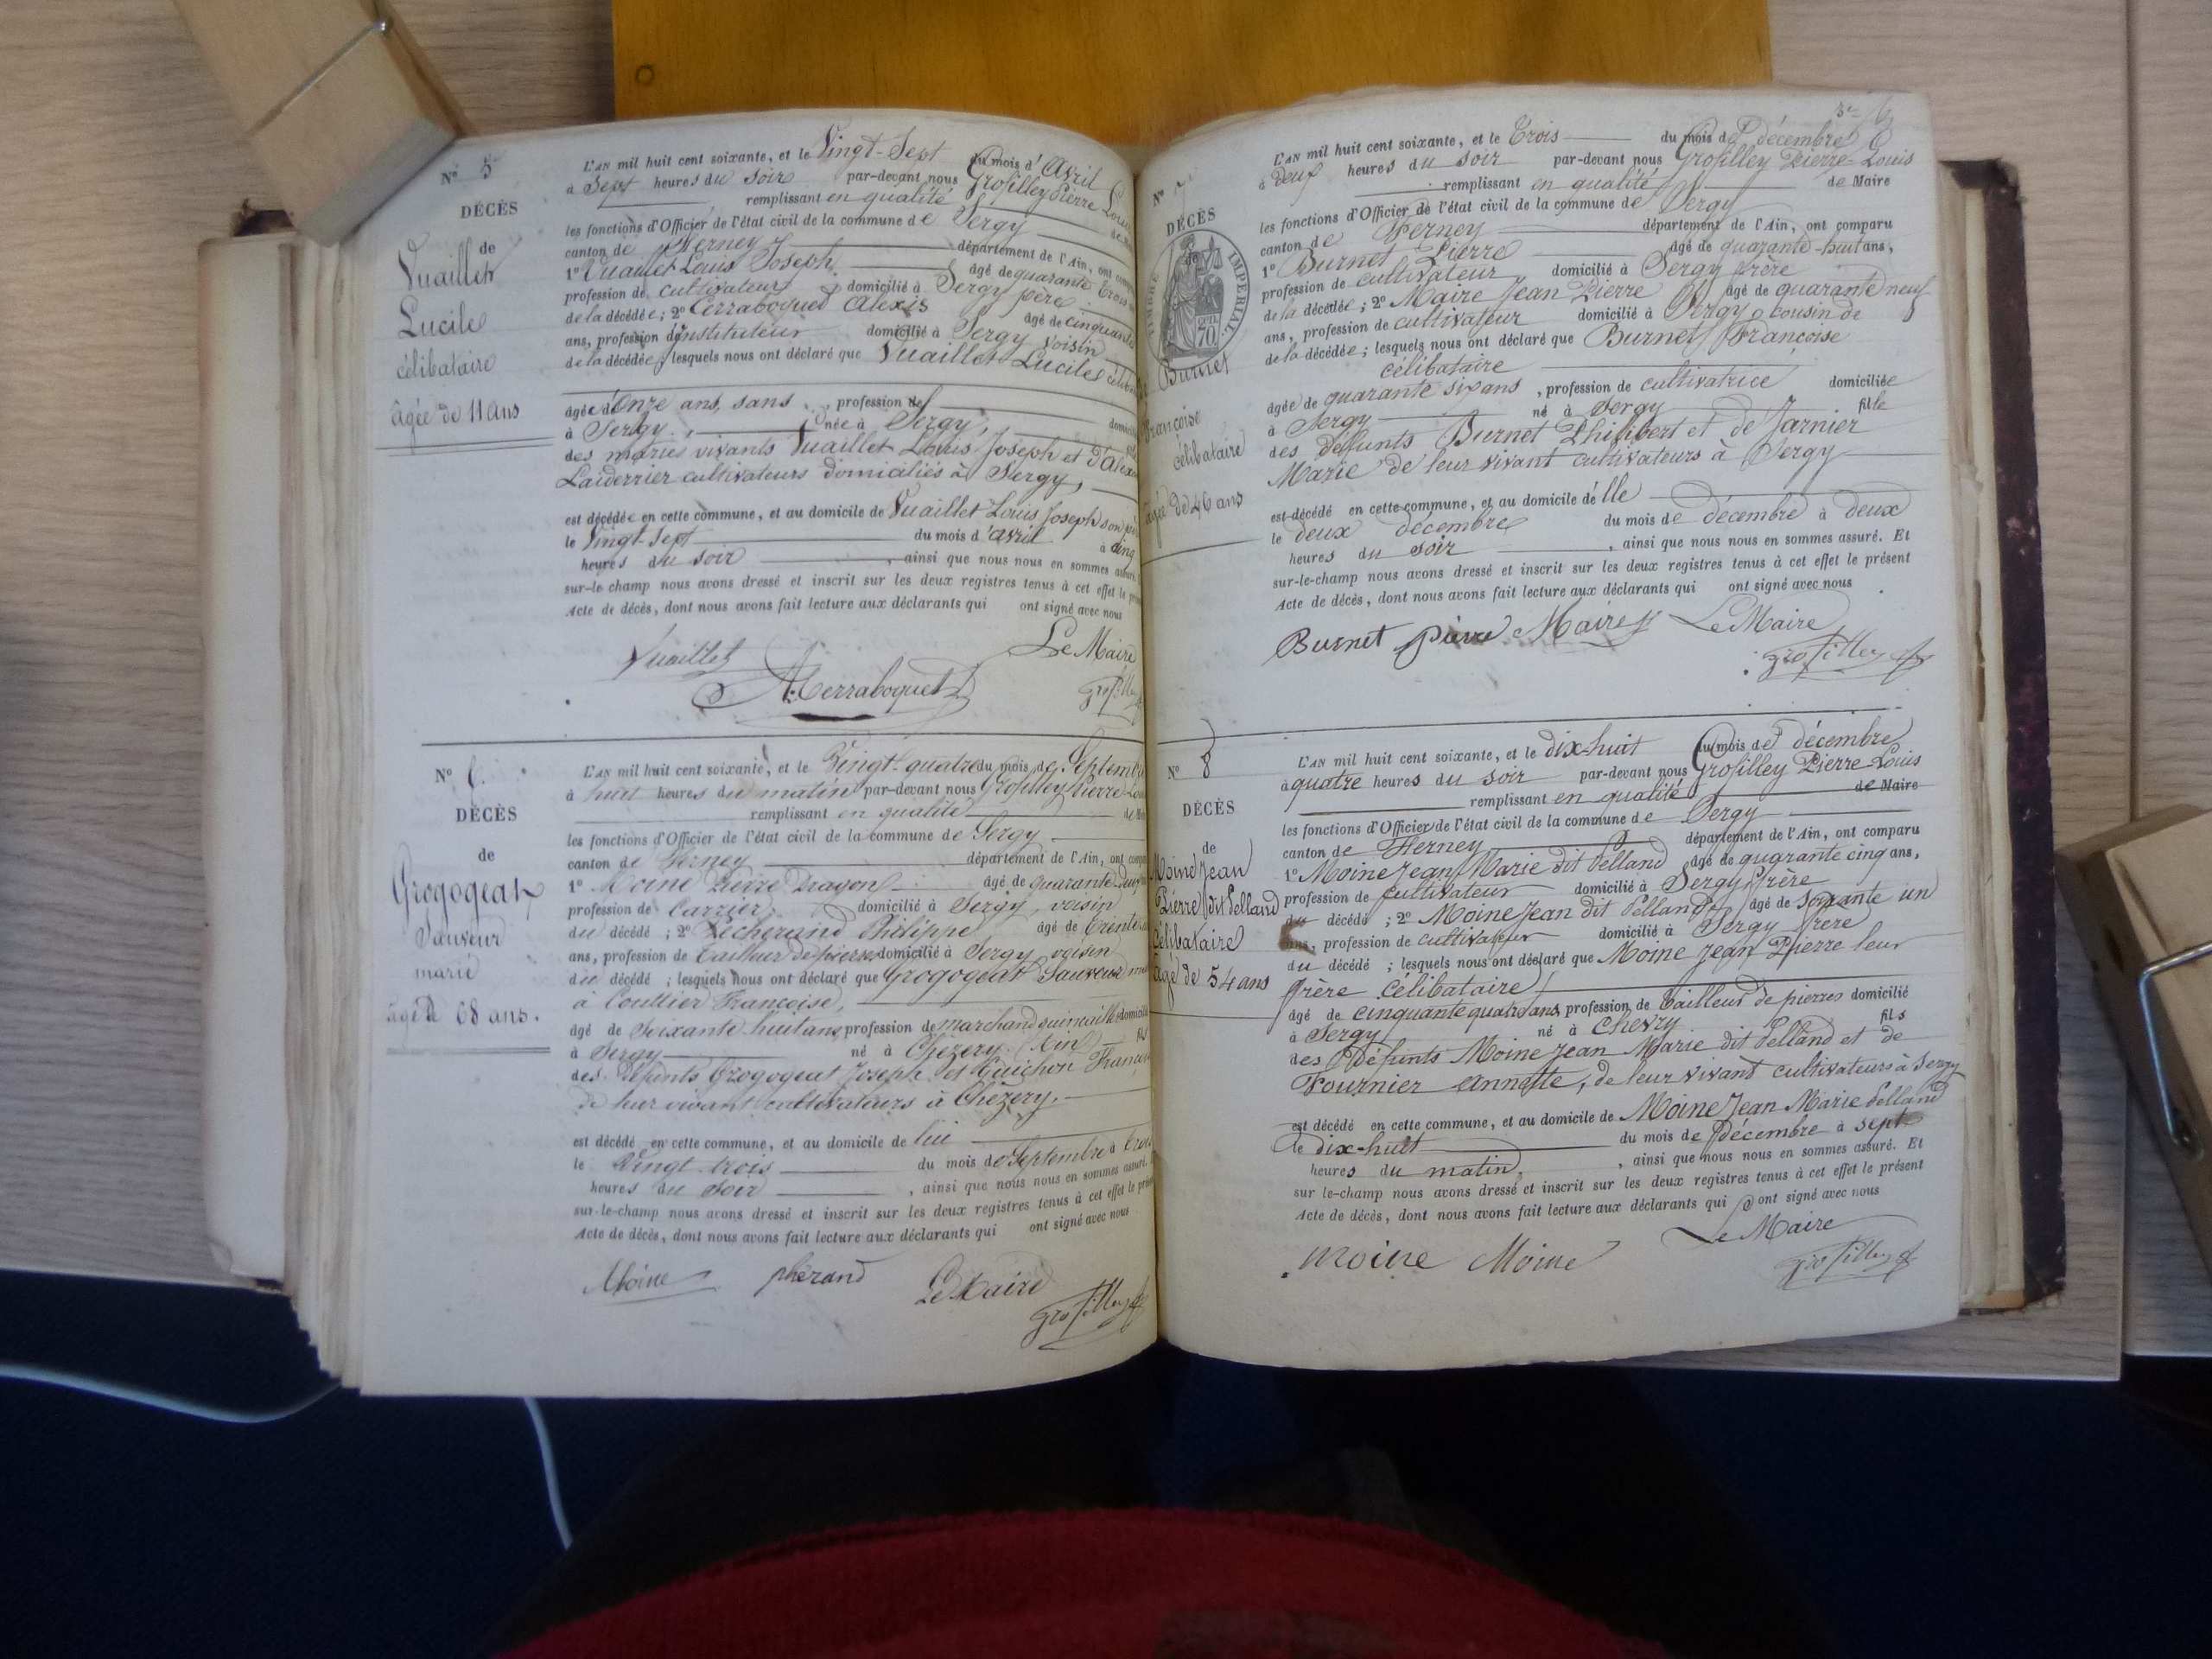 Nº 5
DÉCÈS
de
Vuaillet
Lucile
célibataire
âgée de 11 ans
L'AN mil huit cent soixante, et le Vingt-Sept du mois d'Avril
à Sept heures du soir par-devant nous Grosilley Pierre Louis
remplissant en qualité de
les fonctions d'Officier de l'état civil de la commune de Sergy
canton de Ferney département de l'Ain, ont
1º Vuaillet Louis Joseph âgé de quarante trois
profession de cultivateur domicilié à Sergy père
de la décédée ; 2º Cerraboquet Alexis âgé de cinquante
ans, profession d'instituteur domicilié à Sergy voisin
de la décédée ; lesquels nous ont déclaré que Vuaillet Lucile
âgée d'Onze ans, sans , profession de
à Sergy, née à Sergy,
des mariés vivants Vuaillet Louis Joseph et d'
Laiderrier cultivateurs domiciliés à Sergy,
est décédée en cette commune, et au domicile de Vuaillet Louis Joseph son
le Vingt-Sept du mois d'avril à cinq
heures du soir , ainsi que nous nous en sommes assuré.
sur-le champ nous avons dressé et inscrit sur les deux registres tenus à cet effet le
Acte de décès, dont nous avons fait lecture aux déclarants qui ont signé avec nous
Vuaillet
Le Maire
Cerraboquet
Grosilley
Nº 6.
DÉCÈS
de
Grogogeat
Sauveur
marié
âgé de 68 ans.
L'AN mil huit cent soixante, et le Vingt-quatre du mois de Septembre
à huit heures du matin par-devant nous Grosilley Pierre
remplissant en qualité
les fonctions d'Officier de l'état civil de la commune de Sergy
canton de Ferney département de l'Ain, ont
1º Moine Pierre Dragon âgé de quarante-deux
profession de Carrier domicilié à Sergy, voisin
du décédé ; 2º Philippe âgé de trente
ans, profession de tailleur de pierres domicilié à Sergy voisin
du décédé ; lesquels nous ont déclaré que Grogogeat Sauveur
à Coullier Françoise,
âgé de Soixante huit ans, profession de marchand quincaillier
à Sergy né à Chézery (Ain)
des Défunts Grogogeat Joseph et Guichon
de leur vivant cultivateurs à Chézery.
est décédé en cette commune, et au domicile de lui
le Vingt trois du mois de Septembre à trois
heures du soir , ainsi que nous nous en sommes assuré.
sur-le-champ nous avons dressé et inscrit sur les deux registres tenus à cet effet le
Acte de décès, dont nous avons fait lecture aux déclarants qui ont signé avec nous
Moine pherand Le Maire
Grosilley
Nº 7
DÉCÈS
TIMBRE IMPÉRIAL
70
Burnet
Françoise
célibataire
âgée de 46 ans
L'AN mil huit cent soixante, et le Trois du mois de décembre
à deux heures du soir par-devant nous Grosilley Pierre-Louis
remplissant en qualité de Maire
les fonctions d'Officier de l'état civil de la commune de Sergy
canton de Ferney département de l'Ain, ont comparu
1º Burnet Pierre âgé de quarante-huit ans,
profession de cultivateur domicilié à Sergy frère
de la décédée ; 2º Maire Jean Pierre âgé de quarante neuf
ans, profession de cultivateur domicilié à Sergy cousin de
de la décédée ; lesquels nous ont déclaré que Burnet Françoise
célibataire
âgée de quarante six ans , profession de cultivatrice domiciliée
à Sergy né à Sergy fille
des deffunts Burnet Philibert et de Jarnier
Marie de leur vivant cultivateurs à Sergy
est décédé en cette commune, et au domicile d'elle
le deux décembre du mois de décembre à deux
heures du soir , ainsi que nous nous en sommes assuré. Et
sur-le-champ nous avons dressé et inscrit sur les deux registres tenus à cet effet le présent
Acte de décès, dont nous avons fait lecture aux déclarants qui ont signé avec nous
Burnet pierre Maire Le Maire
Grosilley
Nº 8
DÉCÈS
de
Moine Jean
Pierre dit Pelland
célibataire
âgé de 54 ans
L'AN mil huit cent soixante, et le dix-huit du mois de décembre
à quatre heures du soir par-devant nous Grosilley Pierre-Louis
remplissant en qualité de Maire
les fonctions d'Officier de l'état civil de la commune de Sergy
canton de Ferney département de l'Ain, ont comparu
1º Moine Jean Marie dit Pelland âgé de quarante cinq ans,
profession de cultivateur domicilié à Sergy frère
du décédé ; 2º Moine Jean dit Pelland âgé de soixante un
ans, profession de cultivateur domicilié à Sergy frère
du décédé ; lesquels nous ont déclaré que Moine Jean Pierre leur
frère célibataire
âgé de cinquante quatre ans, profession de tailleur de pierres domicilié
à Sergy né à Chevry fils
des Défunts Moine Jean Marie dit Pelland et de
Fournier Annette, de leur vivant cultivateurs à Sergy
est décédé en cette commune, et au domicile de Moine Jean Marie Pelland
le dix-huit du mois de décembre à sept
heures du matin, , ainsi que nous nous en sommes assuré. Et
sur le-champ nous avons dressé et inscrit sur les deux registres tenus à cet effet le présent
Acte de décès, dont nous avons fait lecture aux déclarants qui ont signé avec nous
Le Maire
moine Moine
Grosilley